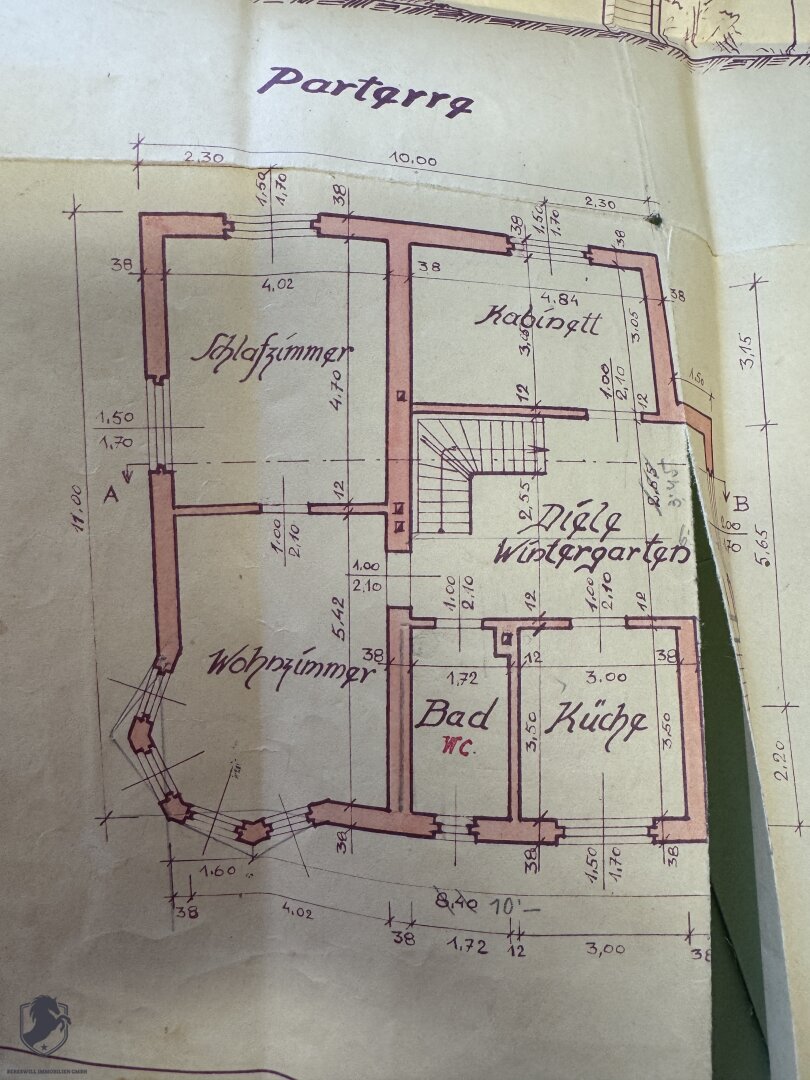 Parterre
2.30
10.00
2.30
1,50
1,70
38
38
1.50
1.70
38
38
4.02
38
4.84
38
Schlafzimmer
Kabinett
3.05
3,15
4.70
12
1.00
2,10
12
1,50
1,50
1,70
A
11,00
12
1.00
2,10
2,55
2,55
3.45
B
Diele
Wintergarten
5,65
1.00
2,10
5,42
1,00
2,10
12
1,00
2,10
12
Wohnzimmer
38
1,72
12
3.00
38
Bad
WC.
Küche
3,50
3,50
2,20
38
38
1,50
1,70
38
1.60
8,40 10'-
38
4.02
38
1.72
12
3,00
38
BERESWILL IMMOBILIEN GMBH